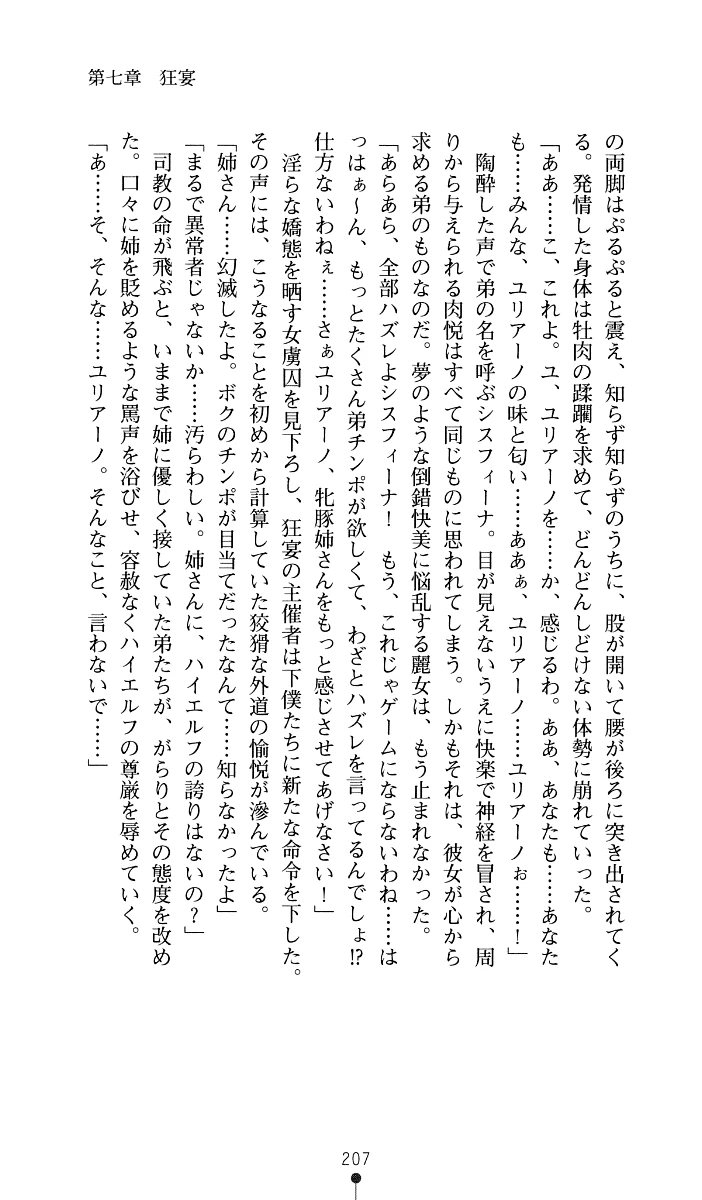 第七章　狂宴
の両脚はぷるぷると震え、知らず知らずのうちに、股が開いて腰が後ろに突き出されてく
る。発情した身体は牡肉の蹂躙を求めて、どんどんしどけない体勢に崩れていった。
「ああ……こ、これよ。ユ、ユリアーノを……か、感じるわ。ああ、あなたも……あなた
も……みんな、ユリアーノの味と匂い……ああぁ、ユリアーノ……ユリアーノぉ……！」
陶酔した声で弟の名を呼ぶシスフィーナ。目が見えないうえに快楽で神経を冒され、周
りから与えられる肉悦はすべて同じものに思われてしまう。しかもそれは、彼女が心から
求める弟のものなのだ。夢のような倒錯快美に悩乱する麗女は、もう止まれなかった。
「あらあら、全部ハズレよシスフィーナ！　もう、これじゃゲームにならないわね……は
っはぁ〜ん、もっとたくさん弟チンポが欲しくて、わざとハズレを言ってるんでしょ!?
仕方ないわねぇ……さぁユリアーノ、牝豚姉さんをもっと感じさせてあげなさい！」
淫らな嬌態を晒す女虜囚を見下ろし、狂宴の主催者は下僕たちに新たな命令を下した。
その声には、こうなることを初めから計算していた狡猾な外道の愉悦が滲んでいる。
「姉さん……幻滅したよ。ボクのチンポが目当てだったなんて……知らなかったよ」
「まるで異常者じゃないか……汚らわしい。姉さんに、ハイエルフの誇りはないの？」
司教の命が飛ぶと、いままで姉に優しく接していた弟たちが、がらりとその態度を改め
た。口々に姉を貶めるような罵声を浴びせ、容赦なくハイエルフの尊厳を辱めていく。
「あ……そ、そんな……ユリアーノ。そんなこと、言わないで……」
207